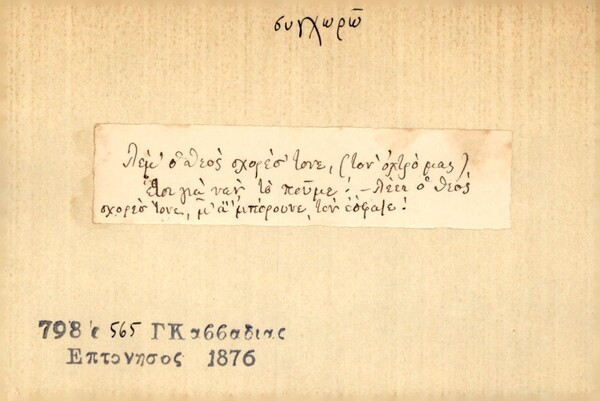 συγχωρῶ
Λέμ' ὁ θεὸς σχορέσ' τονε, (τὸν ὀχτρό μας)
Ἔτσι γιὰ νὰν τὸ ποῦμε! — Λέει ὁ θεὸς
σχορέσ' τονε, μ' ἂ μπόρουνε, τὸν ἔσφαζε!
798 565 ΓΚαββαδιας
Επτανησος 1876